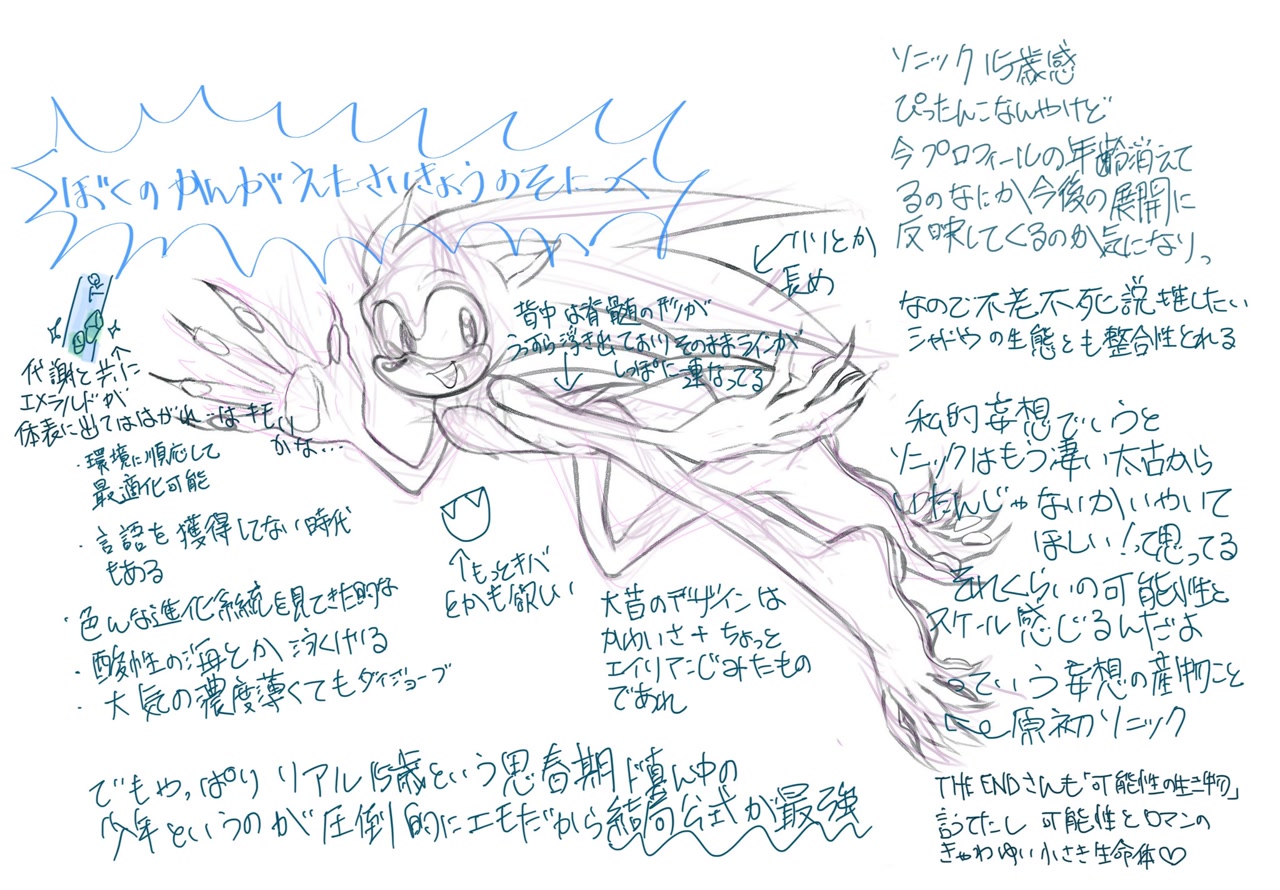 ぼくのかんがえたさいきょうのそにっく
ソニック15歳感
ぴったんこなんやけど
今プロフィールの年齢消えて
るのなにか今後の展開に
反映してくるのか気になりっ
なので不老不死説推したい
シャドウの生態とも整合性とれる
私的妄想でいうと
ソニックはもう凄い太古から
いたんじゃないかいやいて
ほしい！って思ってる
それくらいの可能性と
スケール感じるんだよ
っていう妄想の産物こと
原初ソニック
THE ENDさんも「可能性の生き物」
言うてたし 可能性とロマンの
きゃわゆい小さき生命体♡
ハリとか
長め
背中は脊髄の形が
うっすら浮き出ておりそのままラインが
しっぽに連なってる
代謝と共に
エメラルドが
体表に出てははがれ…はキモい
かな…
・環境に順応して
最適化可能
・言語を獲得してない時代
もある
・色んな進化系統を見てきた的な
・酸性の海とか泳げる
・大気の濃度薄くてもダイジョーブ
↑もっとキバ
とかも欲しい
大昔のデザインは
かわいさ+ちょっと
エイリアンじみたもの
であれ
でもやっぱり リアル15歳という思春期ド真ん中の
少年というのが圧倒的にエモだから結局公式が最強